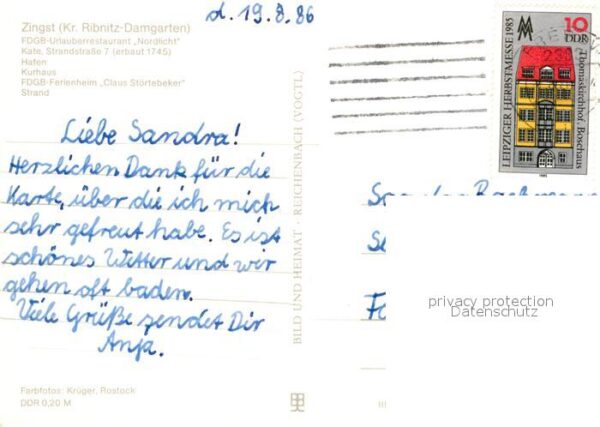 d. 19.8.86
Zingst (Kr. Ribnitz-Damgarten)
FDGB-Urlauberrestaurant „Nordlicht"
Kate, Strandstraße 7 (erbaut 1745)
Hafen
Kurhaus
FDGB-Ferienheim „Claus Störtebeker"
Strand
Liebe Sandra!
Herzlichen Dank für die
Karte, über die ich mich
sehr gefreut habe. Es ist
schönes Wetter und wir
gehen oft baden.
Viele Grüße sendet Dir
Anja.
Farbfotos: Krüger, Rostock
DDR 0,20 M
BILD UND HEIMAT · REICHENBACH (VOGTL)
LEIPZIGER HERBSTMESSE 1985
10
DDR
Thomaskirchhof, Bosehaus
1985
privacy protection
Datenschutz